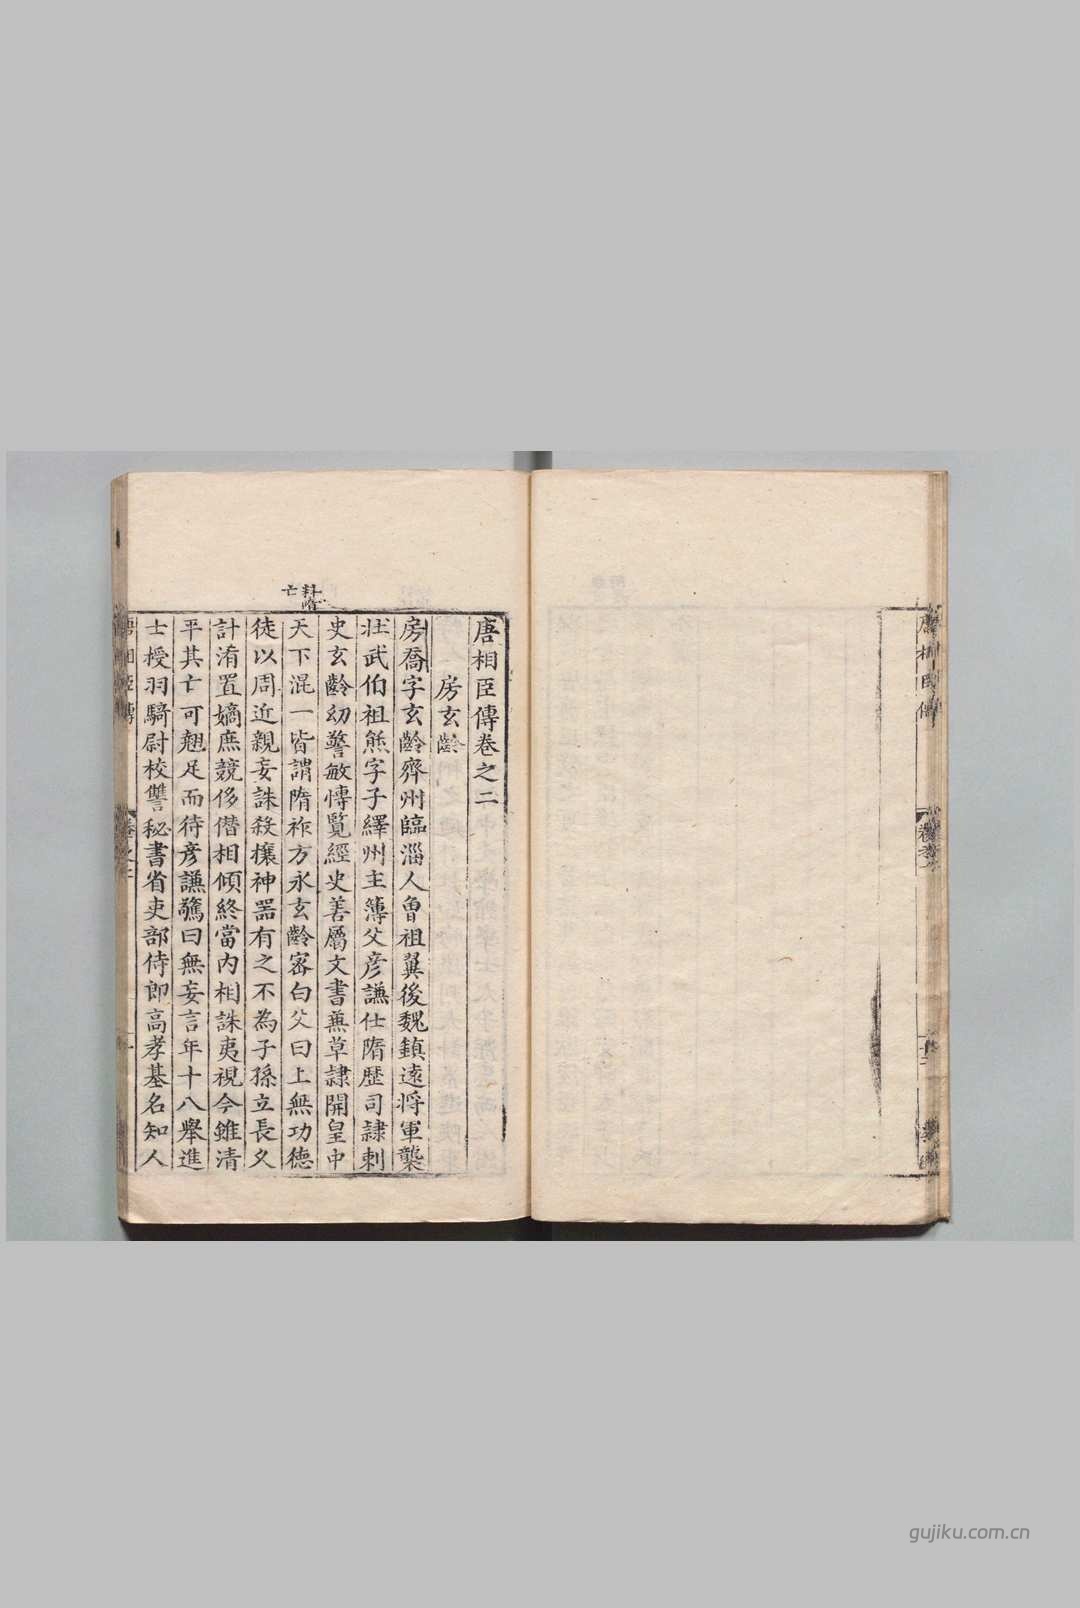 唐相臣傳卷之二
房玄齡
房喬字玄齡齊州臨淄人曾祖翼後魏鎮遠將軍襲
壯武伯祖熊字子繹州主簿父彥謙仕隋歷司隸刺
史玄齡幼警敏愽覽經史善屬文書無草隷開皇中
天下混一皆謂隋祚方永玄齡密白父曰上無功德
徒以周近親妄誅殺攘神噐有之不為子孫立長久
計淆置嫡庶競侈僣相傾終當內相誅夷視今雖清
平其亡可翹足而待彥謙驚曰無妄言年十八舉進
士授羽騎尉校讐秘書省吏部侍郎高孝基名知人
料隋
亡
唐相臣傳
卷之二
一
gujiku.com.cn